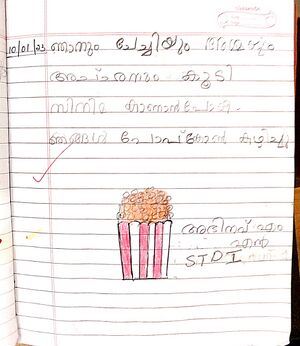 10/01/23 ഞാനും ചേച്ചിയും അമ്മയും
അച്ഛനും കൂടി
സിനിമ കാണാൻ പോയി.
ഞങ്ങൾ പോപ്കോൺ കഴിച്ചു
അഭിനവ് എം
എൻ
STD I